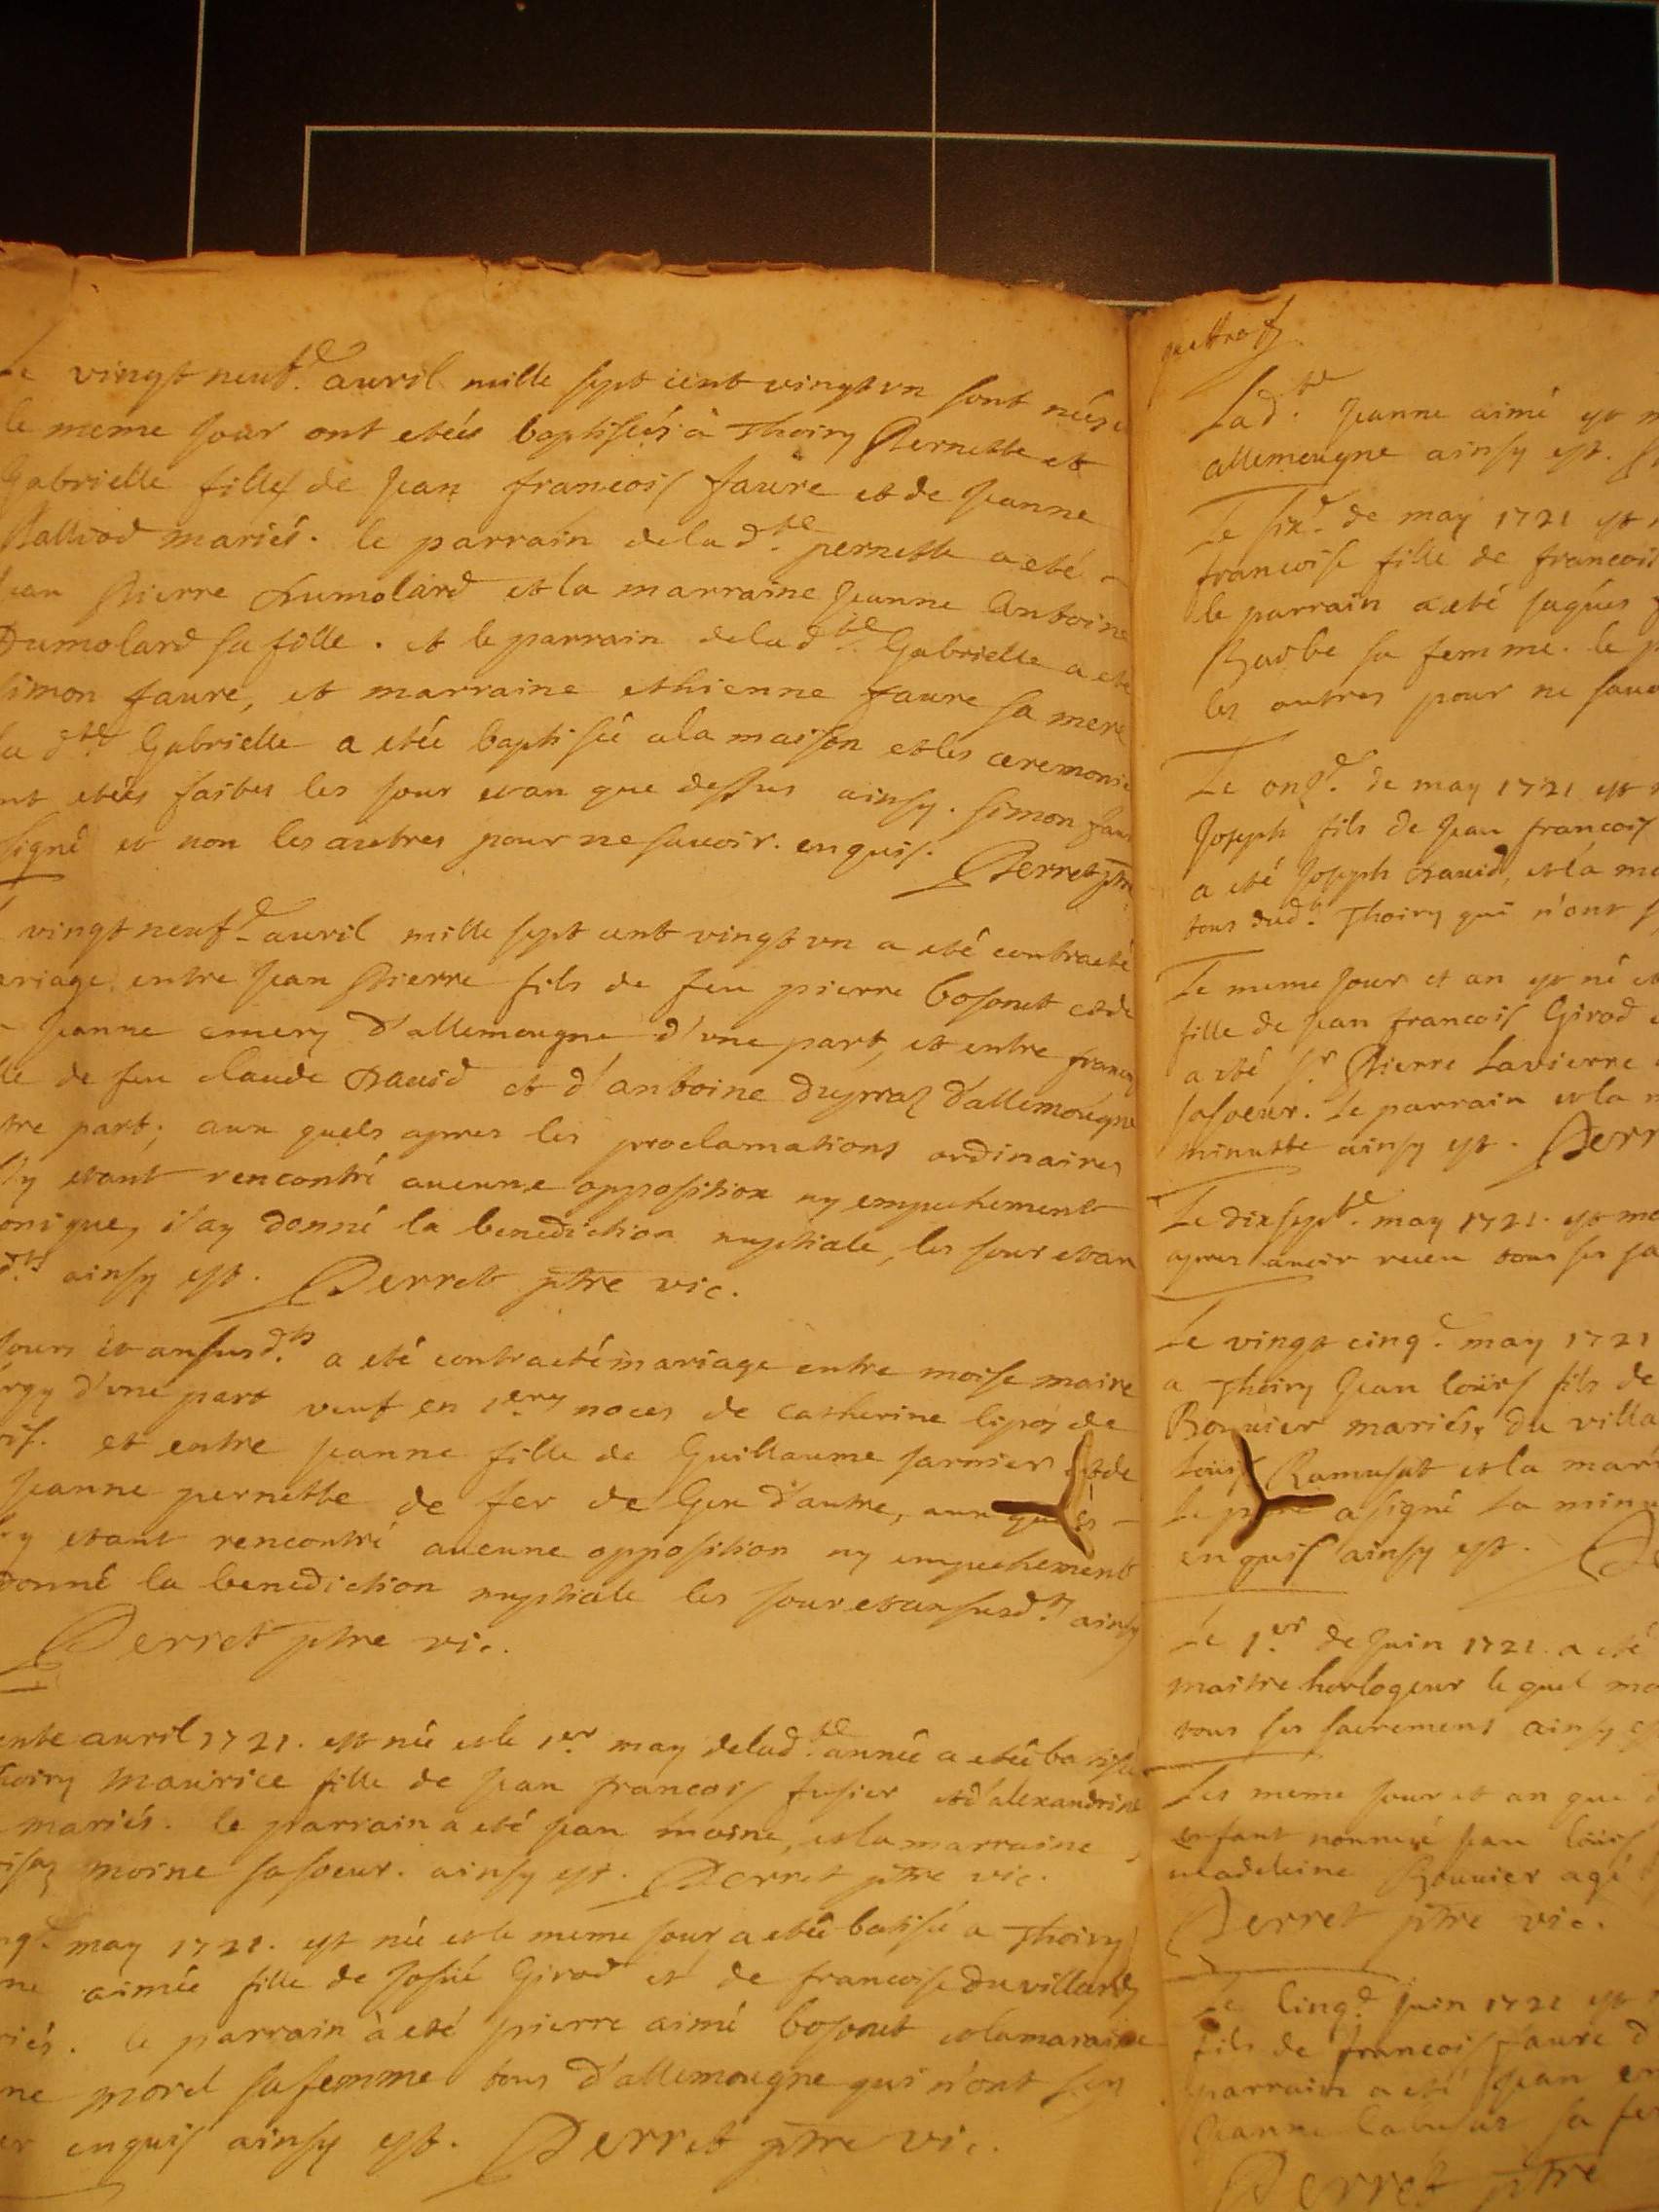 Le vingt neuf.e avril mille sept cent vingt vn sont nées
le meme jour ont etées baptisées à Thoiry Pernette et
Gabrielle filles de Jean francois faure et de Jeanne
Ralliod mariés. le parrain de lad.te pernette a eté
Jean Pierre Dumolard et la marraine Jeanne Antoine
Dumolard sa fille. et le parrain de lad.te Gabrielle a eté
Simon faure, et marraine ethienne faure sa mere
la d.te Gabrielle a etée baptisée a la maison et les ceremonie
nt etées faites les jour et an que dessus ainsy. Simon faur
signé et non les autres pour ne scavoir. enquis. Perret ptre
vingt neuf.e avril mille sept cent vingt vn a eté contracté
ariage entre Jean Pierre fils de feu pierre bosonet et de
Jeanne emery d'allemougne d'une part, et entre francoi
lle de feu claude David et d'antoine duprraz d'allemougne
tre part; aux quels apres les proclamations ordinaires
s'y etant rencontré aucunne opposition ny empechement
onique, j'ay donné la benediction nuptiale, les jour et an
d.ts ainsy est. Perret ptre vic.
jours et an susd.ts a eté contracté mariage entre moise maire
rgy d'une part veuf en 1eres noces de Catherine de
et entre Jeanne fille de Guillaume et de
Jeanne pernette de fer de Gex d'autre, aux quels
s'y etant rencontré aucunne opposition ny empechement
donné la benediction nuptiale les jour et an susd.ts ainsy
Perret ptre vic.
ente avril 1721. est née et le 1er may de lad.te année a etée batisée
hoiry Maurice fille de Jean francois fusier et d'alexandrine
mariés. le parrain a eté Jean moine, et la marraine
moine sa soeur. ainsy est. Perret ptre vic.
nq.e may 1721. est née et le meme jour a etée batisée a Thoiry
ne aimée fille de Josué Girod et de francoise Duvillard
riés. le parrain à eté pierre aimé bosonet et la maraine
ne morel sa femme tous d'allemougne qui n'ont scu
er enquis ainsy est. Perret ptre vic.
Lad.te Jeanne aimé est m
allemougne ainsy est. P
Le six.e de may 1721 est n
francoise fille de francois
le parrain a eté jaques
Barbe sa femme. le p
les autres pour ne scavo
Le onz.e de may 1721 est n
Joseph fils de Jean francois
a eté Joseph David, et la ma
tous dud.t Thoiry qui n'ont s
Le meme jour et an est né et
fille de Jean francois Girod
a eté s.r Pierre Lavierre
sa soeur. Le parrain et la m
minutte ainsy est. Perr
Le dix sept.e may 1721. est mo
apres avoir receu tous ses sa
Le vingt cinq.e may 1721
a Thoiry Jean loüis fils de
Bouvier mariés, du villa
Loüis Ramusat et la marr
Le père a signé la minu
enquis ainsy est. Pe
Le 1.er de juin 1721. a eté
maitre horlogeur le quel mo
tous ses sacremens ainsy es
Les meme jour et an que d
enfant nommé Jean loüis
madeleine Bouvier agé
Perret ptre vic.
Le cinq.e juin 1721 est
fils de francois faure d
parrain a eté Jean em
Jeanne sa fem
Perret ptre